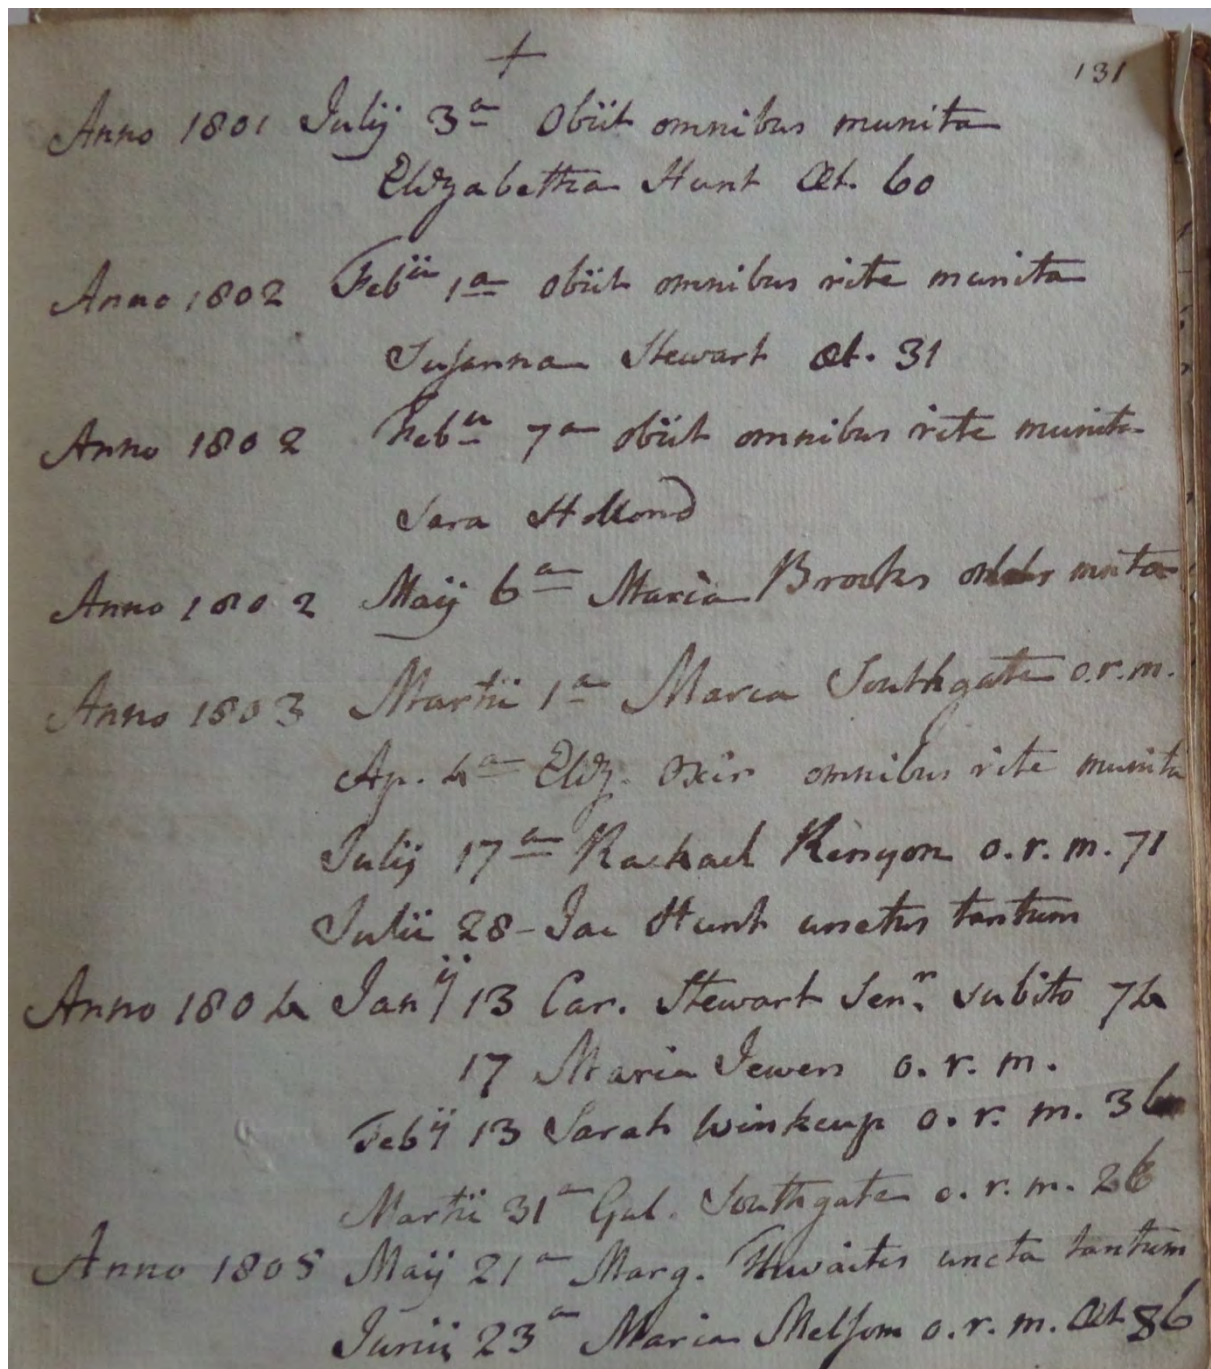 131
Anno 1801 Julij 3a Obiit omnibus munita
Elizabetha Hunt Æt. 60
Anno 1802 Febii 1a obiit omnibus rite munita
Susanna Stewart Æt. 31
Anno 1802 Febii 7a obiit omnibus rite munita
Sara Hollond
Anno 1802 Maij 6a Maria Brooks munta
Anno 1803 Martii 1a Maria Southgate o.r.m.
Ap. 4a Eliz. Oxir omnibus rite munita
Julij 17a Rachael Kenyon o.r.m. 71
Julii 28 - Jac Hunt unctus tantum
Anno 1804 Janij 13 Car. Stewart Senr. subito 74
17 Maria Jewers o.r.m.
Febij 13 Sarah Winkcup o.r.m. 36
Martii 31a Gul. Southgate o.r.m. 26
Anno 1805 Maij 21a Marg. Thwaites uncta tantum
Junii 23a Maria Melsom o.r.m. Æt 86